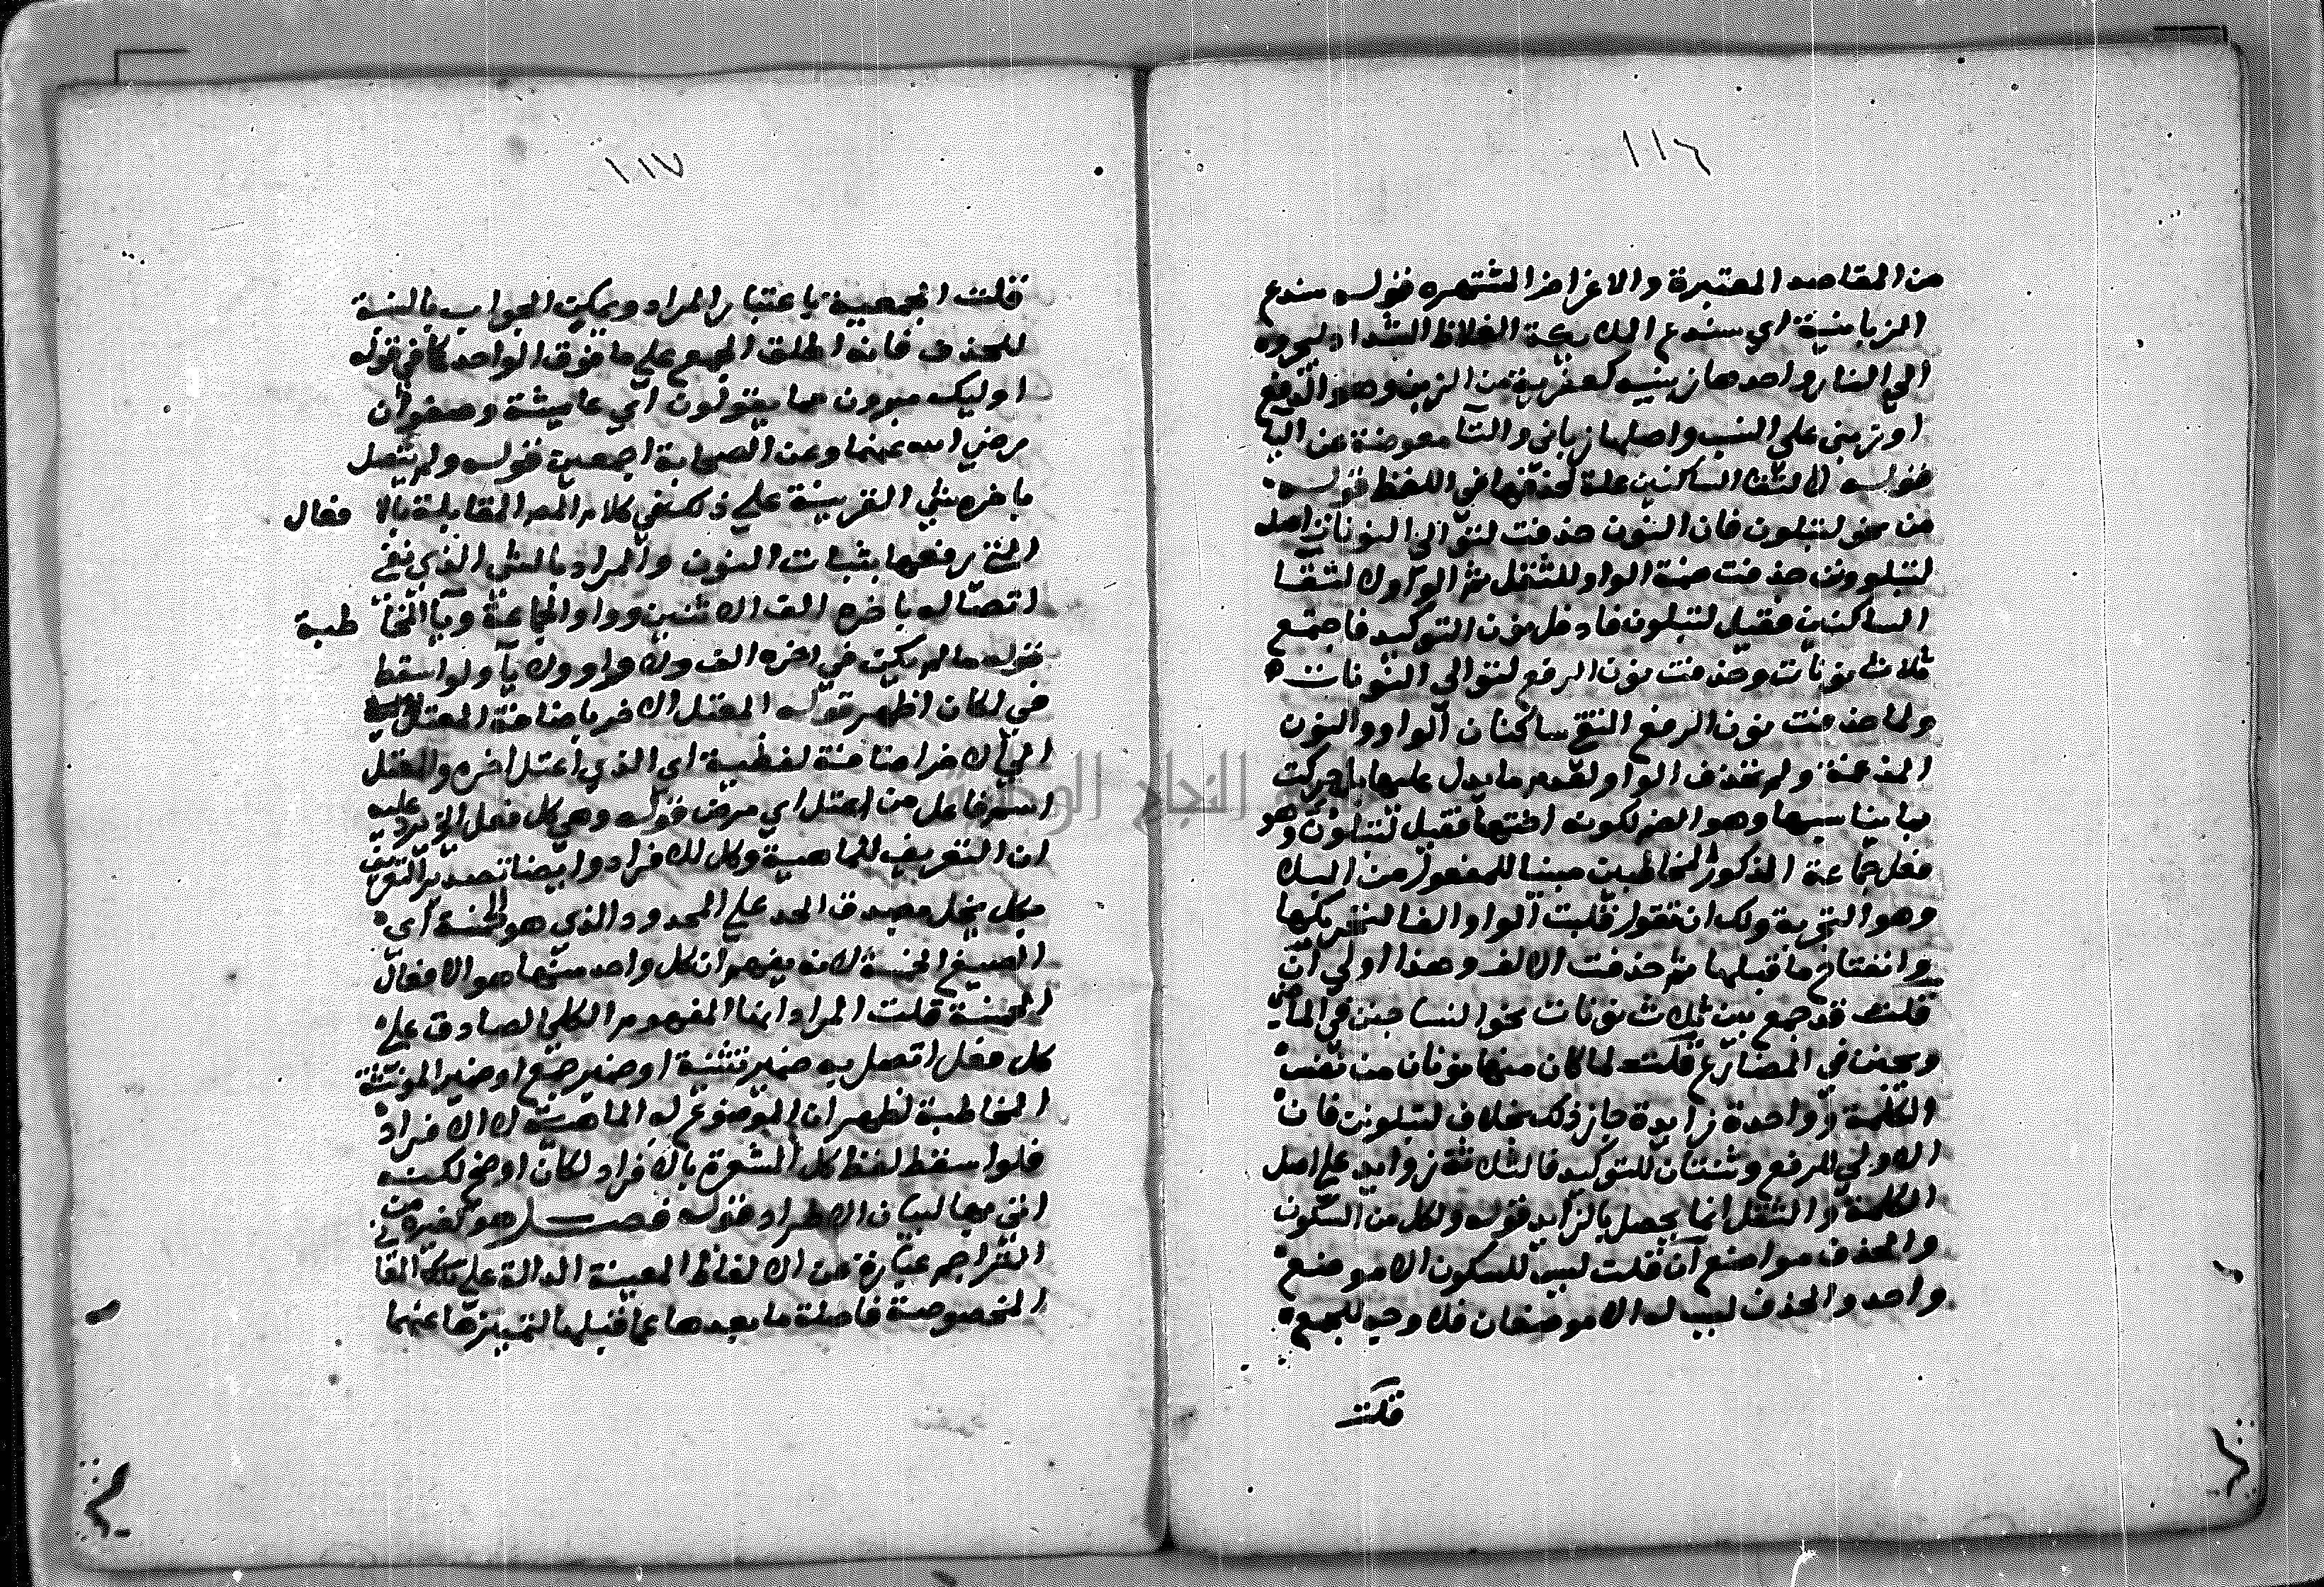 ١١٦
من المقاصد المعتبرة والاغراض المشتهره قوله سندع
الزبانية اي سندع الملايكة الغلاظ الشداد ليجروه
الي النار واحدها زبنيه كعفرية من الزبن وهو الدفع
او زبني علي النسب واصلها زباني والتا معوضة عن اليا
قوله لالتقا الساكنين علة لحذفها في اللفظ قوله
من نحو لتبلون فان النون حذفت لتوالي النونات اصله
لتبلوونن حذفت ضمة الواو للثقل ثم الواو لالتقا
الساكنين فقيل لتبلون فادخل نون التوكيد فاجتمع
ثلاث نونات وحذفت نون الرفع لتوالي النونات
ولما حذفت نون الرفع التقي ساكنان الواو والنون
المدغمة ولم تحذف الواو لعدم ما يدل عليها بل حركت
بما يناسبها وهو الضم لكونه اختها فقيل لتبلون وهو
فعل جماعة الذكور المخاطبين مبنيا للمفعول من البلا
وهو التجربة ولك ان تقول قلبت الواو الفا لتحركها
وانفتاح ما قبلها ثم حذفت الالف وهذا اولي ان
قلت قد جمع بين ثلاث نونات نحو النسا جنن في الماضي
ويجنن في المضارع قلت لما كان منها نونان من نفس
الكلمة وواحدة زايدة جاز ذلك بخلاف لتبلونن فان
الاولي للرفع وثنتان للتوكيد فالثلاثة زوايد علي اصل
الكلمة والثقل انما يحصل بالزايد قوله ولكل من السكون
والحذف مواضع ان قلت ليس للسكون الا موضع
واحد والحذف ليس له الا موضعان فلا وجه للجمع
قلت
١١٧
قلت الجمعية باعتبار المراد ويمكن الجواب بالنسبة
للحذف فانه اطلق الجمع علي ما فوق الواحد كما في قوله
اوليك مبرون مما يقولون اي عايشة وصفوان
رضي الله عنهما وعن الصحابة اجمعين قوله ولم يتصل
باخره شي القرينة علي ذلك في كلام المص المقابلة بالافعال
التي رفعها بثبات النون والمراد بالشي الذي نفي
اتصاله باخره الف الاثنين وواو الجماعة ويا المخاطبة
قوله ما لم يكن في اخره الف ولا واو ولا يا ولو اسقط
في لكان اظهر قوله المعتل الاخر باضافة المعتل
الي الاخر اضافة لفظية اي الذي اعتل اخره والمعتل
اسم فاعل من اعتل اي مرض قوله وهي كل فعل الخ يرد عليه
ان التعريف للماهية وكل للافراد وايضا تصدير التعريف
بكل يخل بصدق الحد علي المحدود الذي هو الخمسة اي
الصيغ الخمسة لانه يفهم ان كل واحد منها هو الافعال
الخمسة قلت المراد انما المفهوم الكلي الصادق علي
كل فعل اتصل به ضمير تثنية او ضمير جمع او ضمير المونثة
المخاطبة لظهر ان الموضوع له الماهية لا الافراد
فلو اسقط لفظ كل المشعرة بالافراد لكان اوضح لكنه
اتي بها لبيان الاطراد قوله فصل هو كغيره من
التراجم عبارة عن الالفاظ المعينة الدالة علي تلك المعاني
المخصوصة فاصلة ما بعدها عما قبلها لتميزها عنهما